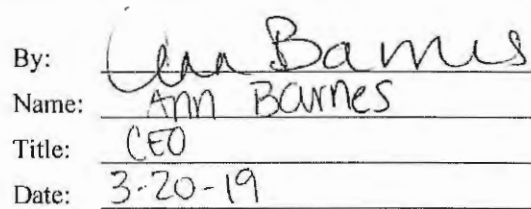 By: Ann Barnes
Name: Ann Barnes
Title: CEO
Date: 3-20-19